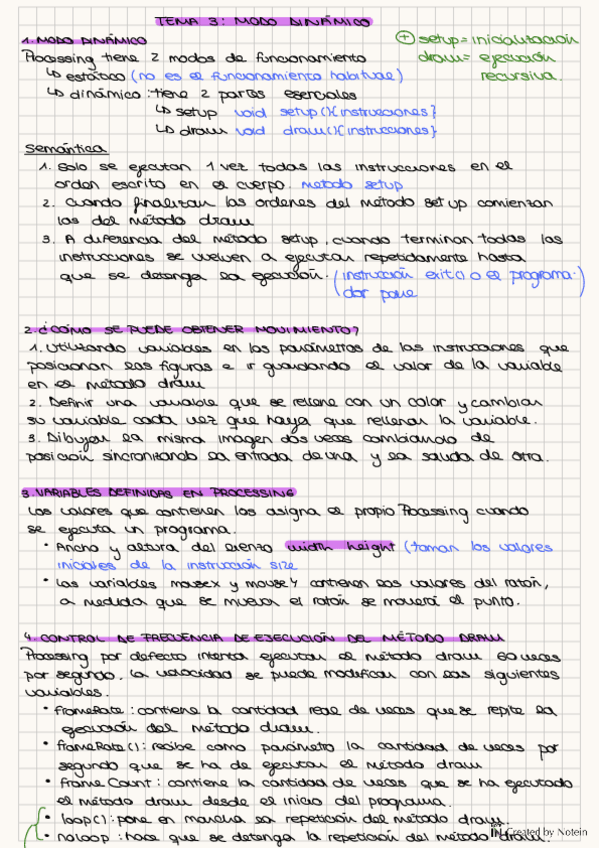 TEMA 3: MODO DINÁMICO
1. MODO DINÁMICO
Processing tiene 2 modos de funcionamiento
↳ estático (no es el funcionamiento habitual)
↳ dinámico: tiene 2 partes esenciales
↳ setup void setup(){instrucciones}
↳ draw void draw(){instrucciones}
+ setup = inicialización
draw = ejecución
recursiva.
Semántica
1. Solo se ejecutan 1 vez todas las instrucciones en el
orden escrito en el cuerpo. metodo setup
2. Cuando finalizan las ordenes del método set up comienzan
las del método draw
3. A diferencia del método setup, cuando terminan todas las
instrucciones se vuelven a ejecutar repetidamente hasta
que se detenga la ejecución. (instrucción exit() o el programa.)
dar pause
2. ¿CÓMO SE PUEDE OBTENER MOVIMIENTO?
1. Utilizando variables en los parámetros de las instrucciones que
posicionan las figuras e ir guardando el valor de la variable
en el método draw
2. Definir una variable que se rellene con un color y cambiar
su variable cada vez que haya que rellenar la variable.
3. Dibujar la misma imagen dos veces cambiando de
posición sincronizando la entrada de una y la salida de otra.
3. VARIABLES DEFINIDAS EN PROCESSING
Los valores que contienen los asigna el propio Processing cuando
se ejecuta un programa.
• Ancho y altura del lienzo width height (toman los valores
iniciales de la instrucción size
• Las variables mousex y mouseY contienen los valores del ratón,
a medida que se mueva el ratón se moverá el punto.
4. CONTROL DE FRECUENCIA DE EJECUCIÓN DEL MÉTODO DRAW
Processing por defecto intenta ejecutar el método draw 60 veces
por segundo. La velocidad se puede modificar con las siguientes
variables.
• frameRate: contiene la cantidad real de veces que se repite la
ejecución del método draw.
• frameRate(): recibe como parámetro la cantidad de veces por
segundo que se ha de ejecutar el método draw
• frame Count: contiene la cantidad de veces que se ha ejecutado
el método draw desde el inicio del programa.
• loop(): pone en marcha la repetición del método draw.
• noloop: hace que se detenga la repetición del método draw.
Created by Notein